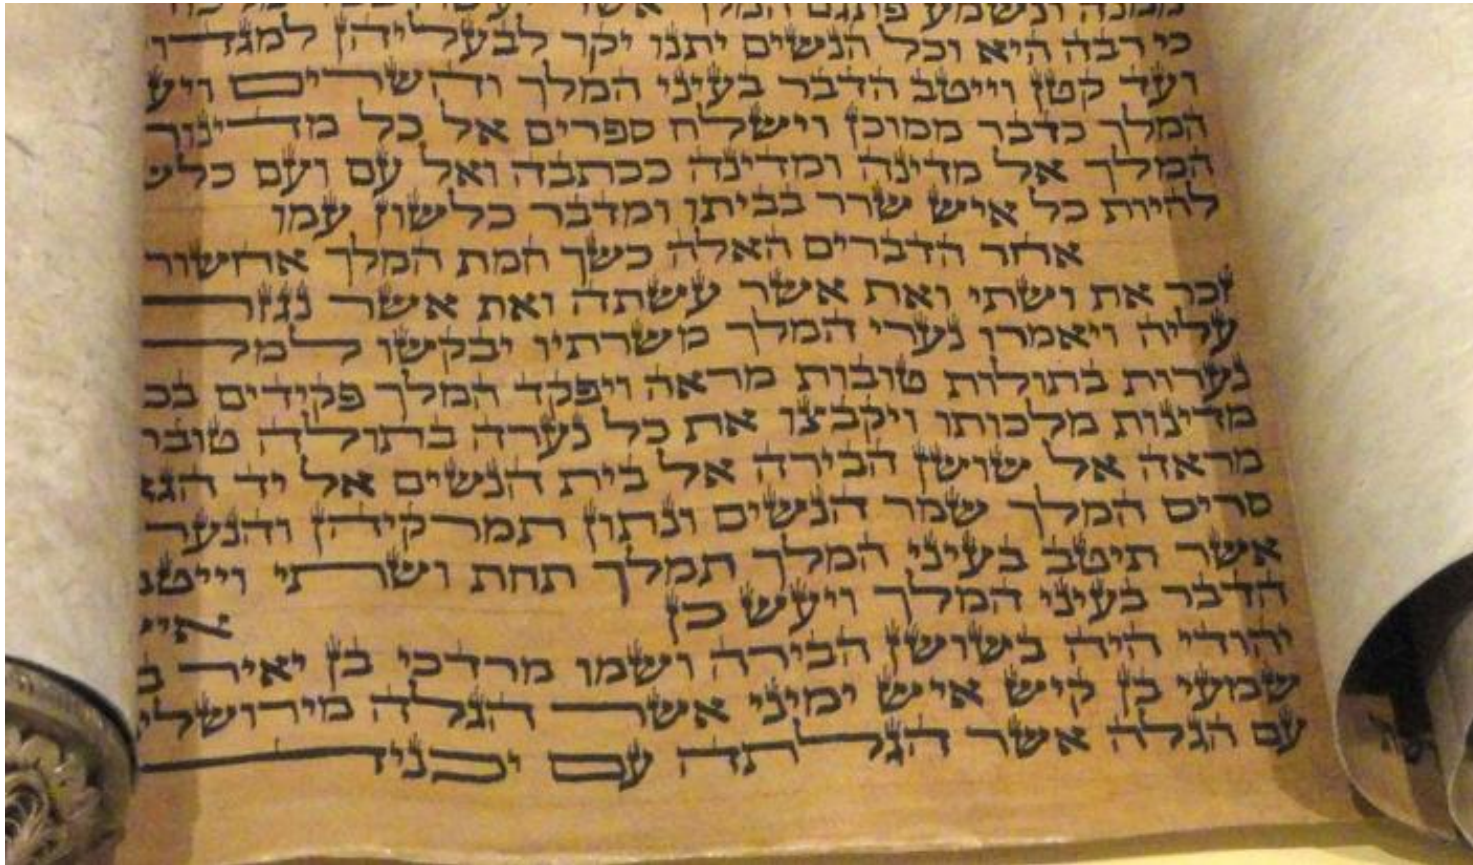 ממנה ונשמע פתגם המלך אשר יעשה בכל
כי רבה היא וכל הנשים יתנו יקר לבעליהן למגדו
ועד קטן וייטב הדבר בעיני המלך והשרים ויע
המלך כדבר ממוכן וישלח ספרים אל כל מדינו
המלך אל מדינה ומדינה ככתבה ואל עם ועם כלש
להיות כל איש שרר בביתו ומדבר כלשון עמו
אחר הדברים האלה כשך חמת המלך אחשור
זכר את ושתי ואת אשר עשתה ואת אשר נגזר
עליה ויאמרו נערי המלך משרתיו יבקשו למל
נערות בתולות טובות מראה ויפקד המלך פקידים בכ
מדינות מלכותו ויקבצו את כל נערה בתולה טוב
מראה אל שושן הבירה אל בית הנשים אל יד הגא
סריס המלך שמר הנשים ונתון תמרקיהן והנער
אשר תיטב בעיני המלך תמלך תחת ושתי וייטב
הדבר בעיני המלך ויעש כן אי
יהודי היה בשושן הבירה ושמו מרדכי בן יאיר ב
שמעי בן קיש איש ימיני אשר הגלה מירושלי
עם הגלה אשר הגלתה עם יכניה